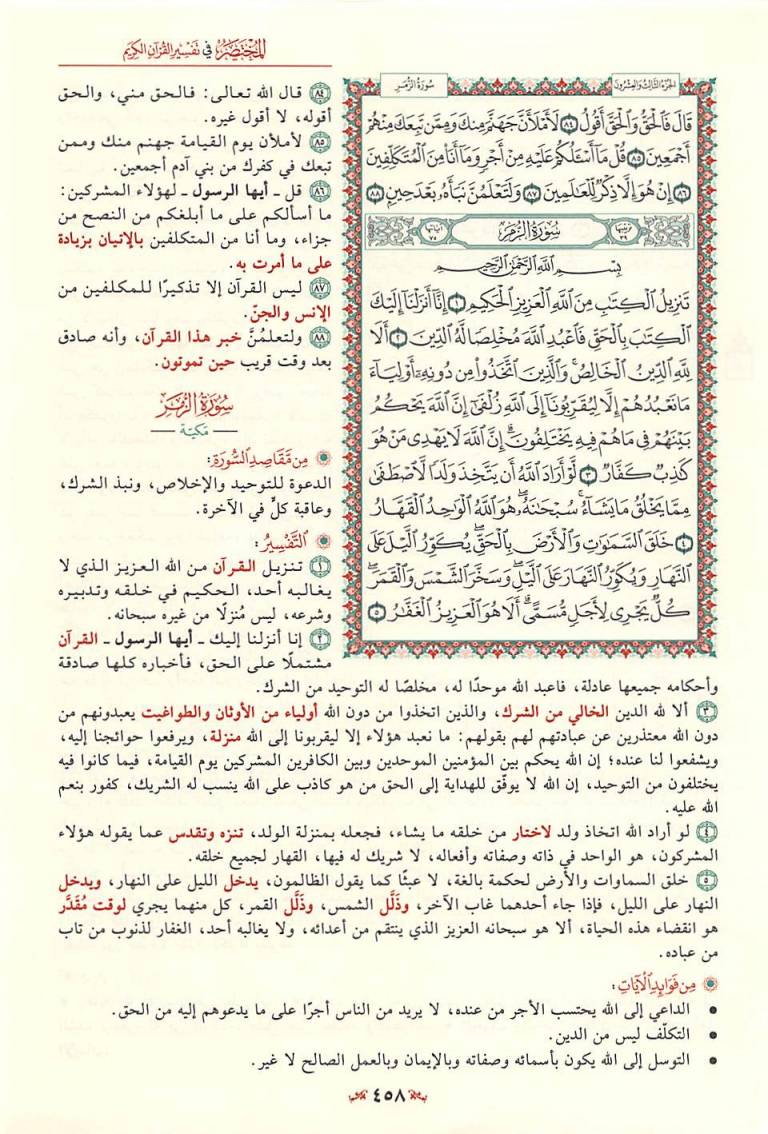 المختصر في تفسير القرآن الكريم
سورة الزمر
الجزء الثالث والعشرون
قَالَ فَالْحَقُّ وَالْحَقَّ أَقُولُ ٨٤ لَأَمْلَأَنَّ جَهَنَّمَ مِنكَ وَمِمَّن تَبِعَكَ مِنْهُمْ
أَجْمَعِينَ ٨٥ قُلْ مَا أَسْـَٔلُكُمْ عَلَيْهِ مِنْ أَجْرٍ وَمَا أَنَا مِنَ الْمُتَكَلِّفِينَ
٨٦ إِنْ هُوَ إِلَّا ذِكْرٌ لِّلْعَالَمِينَ ٨٧ وَلَتَعْلَمُنَّ نَبَأَهُ بَعْدَ حِينٍ ٨٨
ترتيبها ٣٩ سُورَةُ الزُّمَرِ آياتها ٧٥
بِسْمِ اللَّهِ الرَّحْمَٰنِ الرَّحِيمِ
تَنزِيلُ الْكِتَٰبِ مِنَ اللَّهِ الْعَزِيزِ الْحَكِيمِ ١ إِنَّا أَنزَلْنَا إِلَيْكَ
الْكِتَٰبَ بِالْحَقِّ فَاعْبُدِ اللَّهَ مُخْلِصًا لَّهُ الدِّينَ ٢ أَلَا
لِلَّهِ الدِّينُ الْخَالِصُ ۚ وَالَّذِينَ اتَّخَذُوا مِن دُونِهِ أَوْلِيَاءَ
مَا نَعْبُدُهُمْ إِلَّا لِيُقَرِّبُونَا إِلَى اللَّهِ زُلْفَىٰ إِنَّ اللَّهَ يَحْكُمُ
بَيْنَهُمْ فِي مَا هُمْ فِيهِ يَخْتَلِفُونَ ۗ إِنَّ اللَّهَ لَا يَهْدِي مَنْ هُوَ
كَٰذِبٌ كَفَّارٌ ٣ لَّوْ أَرَادَ اللَّهُ أَن يَتَّخِذَ وَلَدًا لَّاصْطَفَىٰ
مِمَّا يَخْلُقُ مَا يَشَاءُ ۚ سُبْحَٰنَهُ ۖ هُوَ اللَّهُ الْوَٰحِدُ الْقَهَّارُ
٤ خَلَقَ السَّمَٰوَٰتِ وَالْأَرْضَ بِالْحَقِّ ۖ يُكَوِّرُ اللَّيْلَ عَلَى
النَّهَارِ وَيُكَوِّرُ النَّهَارَ عَلَى اللَّيْلِ ۖ وَسَخَّرَ الشَّمْسَ وَالْقَمَرَ ۖ
كُلٌّ يَجْرِي لِأَجَلٍ مُّسَمًّى ۗ أَلَا هُوَ الْعَزِيزُ الْغَفَّٰرُ ٥
٨٤ قال الله تعالى: فالحق مني، والحق
أقوله، لا أقول غيره.
٨٥ لأملأن يوم القيامة جهنم منك وممن
تبعك في كفرك من بني آدم أجمعين.
٨٦ قل ـ أيها الرسول ـ لهؤلاء المشركين:
ما أسألكم على ما أبلغكم من النصح من
جزاء، وما أنا من المتكلفين بالإتيان بزيادة
على ما أمرت به.
٨٧ ليس القرآن إلا تذكيرًا للمكلفين من
الإنس والجنّ.
٨٨ ولتعلمُنَّ خبر هذا القرآن، وأنه صادق
بعد وقت قريب حين تموتون.
سورة الزمر
ـ مكية ـ
من مقاصد السورة:
الدعوة للتوحيد والإخلاص، ونبذ الشرك،
وعاقبة كلٍّ في الآخرة.
التفسير:
١ تنزيل القرآن من الله العزيز الذي لا
يغالبه أحد، الحكيم في خلقه وتدبيره
وشرعه، ليس مُنزلًا من غيره سبحانه.
٢ إنا أنزلنا إليك ـ أيها الرسول ـ القرآن
مشتملًا على الحق، فأخباره كلها صادقة
وأحكامه جميعها عادلة، فاعبد الله موحدًا له، مخلصًا له التوحيد من الشرك.
٣ ألا لله الدين الخالي من الشرك، والذين اتخذوا من دون الله أولياء من الأوثان والطواغيت يعبدونهم من
دون الله معتذرين عن عبادتهم لهم بقولهم: ما نعبد هؤلاء إلا ليقربونا إلى الله منزلة، ويرفعوا حوائجنا إليه،
ويشفعوا لنا عنده؛ إن الله يحكم بين المؤمنين الموحدين وبين الكافرين المشركين يوم القيامة، فيما كانوا فيه
يختلفون من التوحيد، إن الله لا يوفّق للهداية إلى الحق من هو كاذب على الله ينسب له الشريك، كفور بنعم
الله عليه.
٤ لو أراد الله اتخاذ ولد لاختار من خلقه ما يشاء، فجعله بمنزلة الولد، تنزه وتقدس عما يقوله هؤلاء
المشركون، هو الواحد في ذاته وصفاته وأفعاله، لا شريك له فيها، القهار لجميع خلقه.
٥ خلق السماوات والأرض لحكمة بالغة، لا عبثًا كما يقول الظالمون، يدخل الليل على النهار، ويدخل
النهار على الليل، فإذا جاء أحدهما غاب الآخر، وذلَّل الشمس، وذلَّل القمر، كل منهما يجري لوقت مُقَدَّر
هو انقضاء هذه الحياة، ألا هو سبحانه العزيز الذي ينتقم من أعدائه، ولا يغالبه أحد، الغفار لذنوب من تاب
من عباده.
من فوائد الآيات:
• الداعي إلى الله يحتسب الأجر من عنده، لا يريد من الناس أجرًا على ما يدعوهم إليه من الحق.
• التكلّف ليس من الدين.
• التوسل إلى الله يكون بأسمائه وصفاته وبالإيمان وبالعمل الصالح لا غير.
٤٥٨